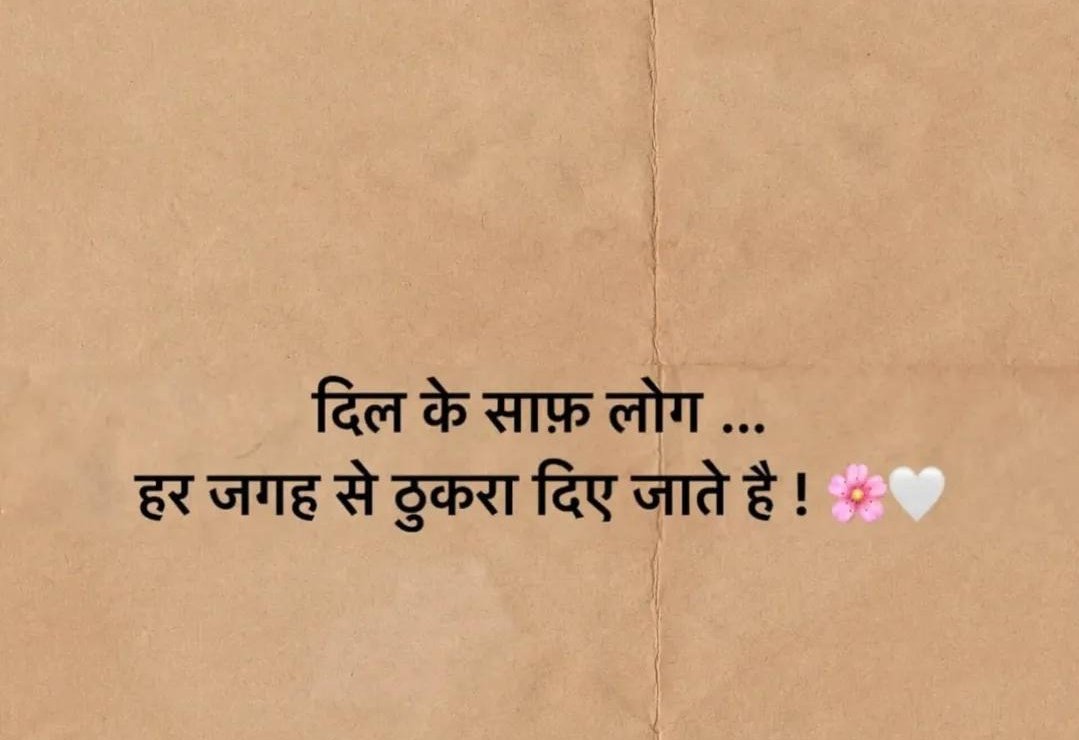 दिल के साफ़ लोग ...
हर जगह से ठुकरा दिए जाते है ! 🌸🤍